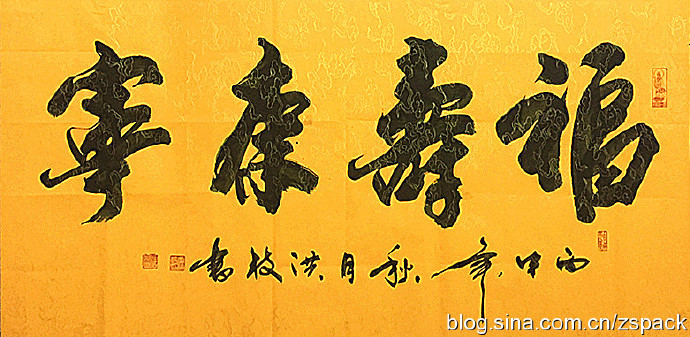 福壽康寧
丙申年秋月洪枝書
blog.sina.com.cn/zspack